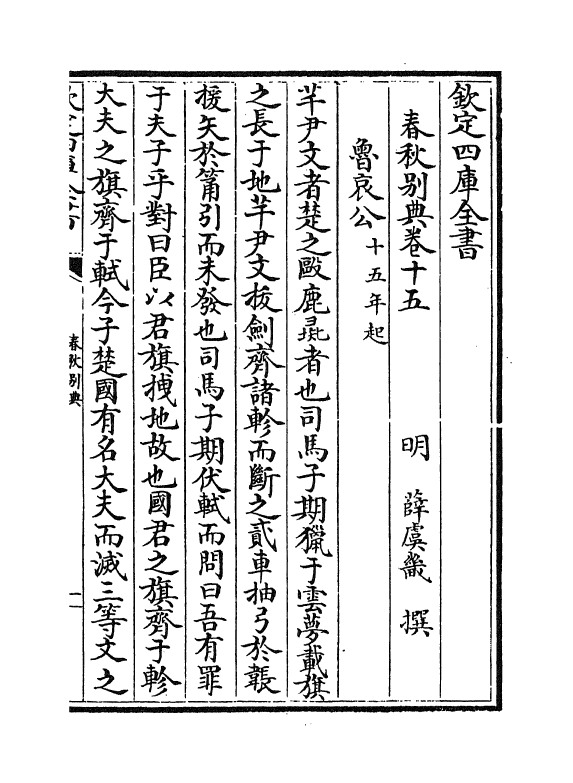 欽定四庫全書
春秋别典卷十五
明 薛虞畿 撰
魯哀公十五年起
芊尹文者楚之歐鹿彘者也司馬子期獵于雲夢載旗
之長于地芊尹文拔劍齊諸軫而斷之貳車抽弓於韔
援矢於筩引而未發也司馬子期伏軾而問曰吾有罪
于夫子乎對曰臣以君旗拽地故也國君之旗齊于軫
大夫之旗齊于軾今子楚國有名大夫而滅三等文之
春秋别典